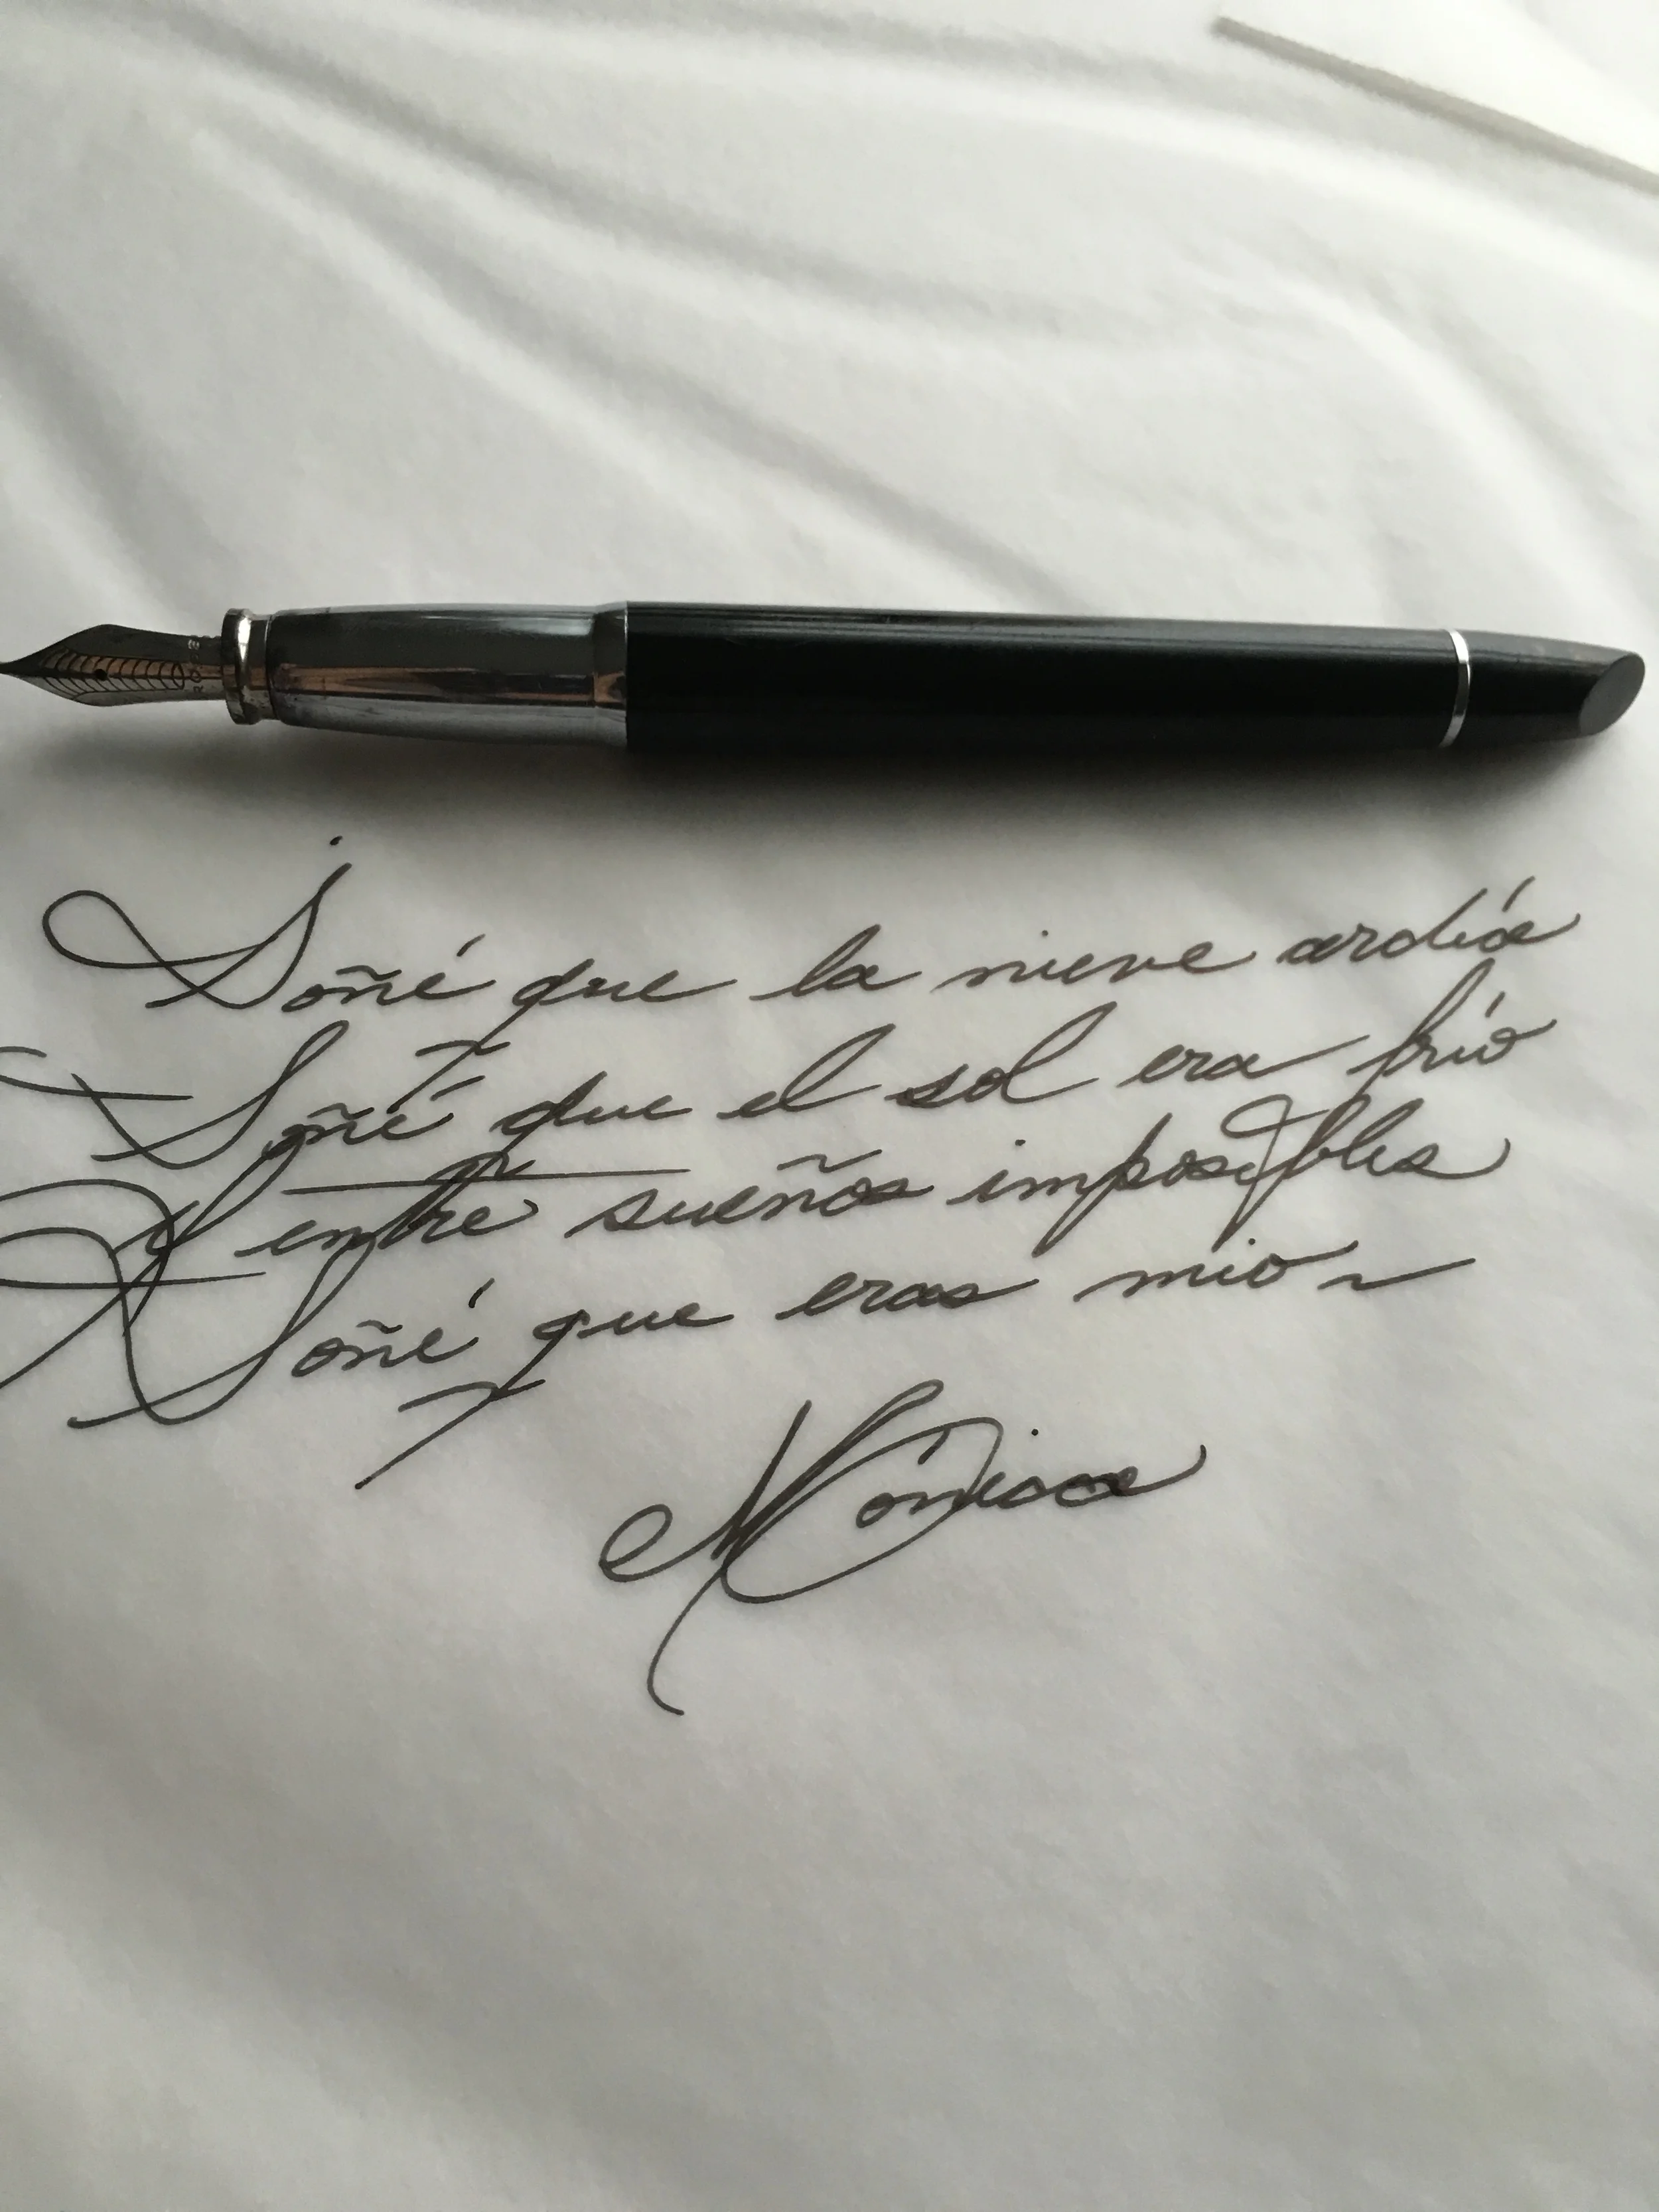 Soñé que la nieve ardía
Soñé que el sol era frío
Y entre sueños imposibles
Soñé que eras mio~
Mónica